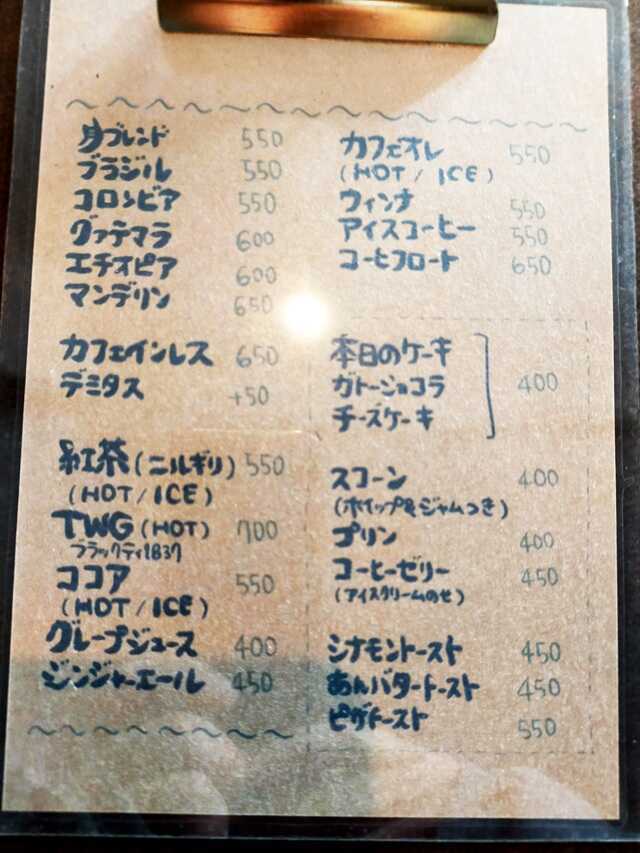 ブレンド 550
ブラジル 550
コロンビア 550
グァテマラ 600
エチオピア 600
マンデリン 650
カフェインレス 650
デミタス +50
紅茶(ニルギリ) 550
(HOT/ICE)
TWG(HOT) 700
ブラックティ1837
ココア 550
(HOT/ICE)
グレープジュース 400
ジンジャーエール 450
カフェオレ 550
(HOT/ICE)
ウィンナ 550
アイスコーヒー 550
コーヒフロート 650
本日のケーキ
ガトーショコラ 400
チーズケーキ
スコーン 400
(ホイップ&ジャムつき)
プリン 400
コーヒーゼリー 450
(アイスクリームのせ)
シナモントースト 450
あんバタートースト 450
ピザトースト 550